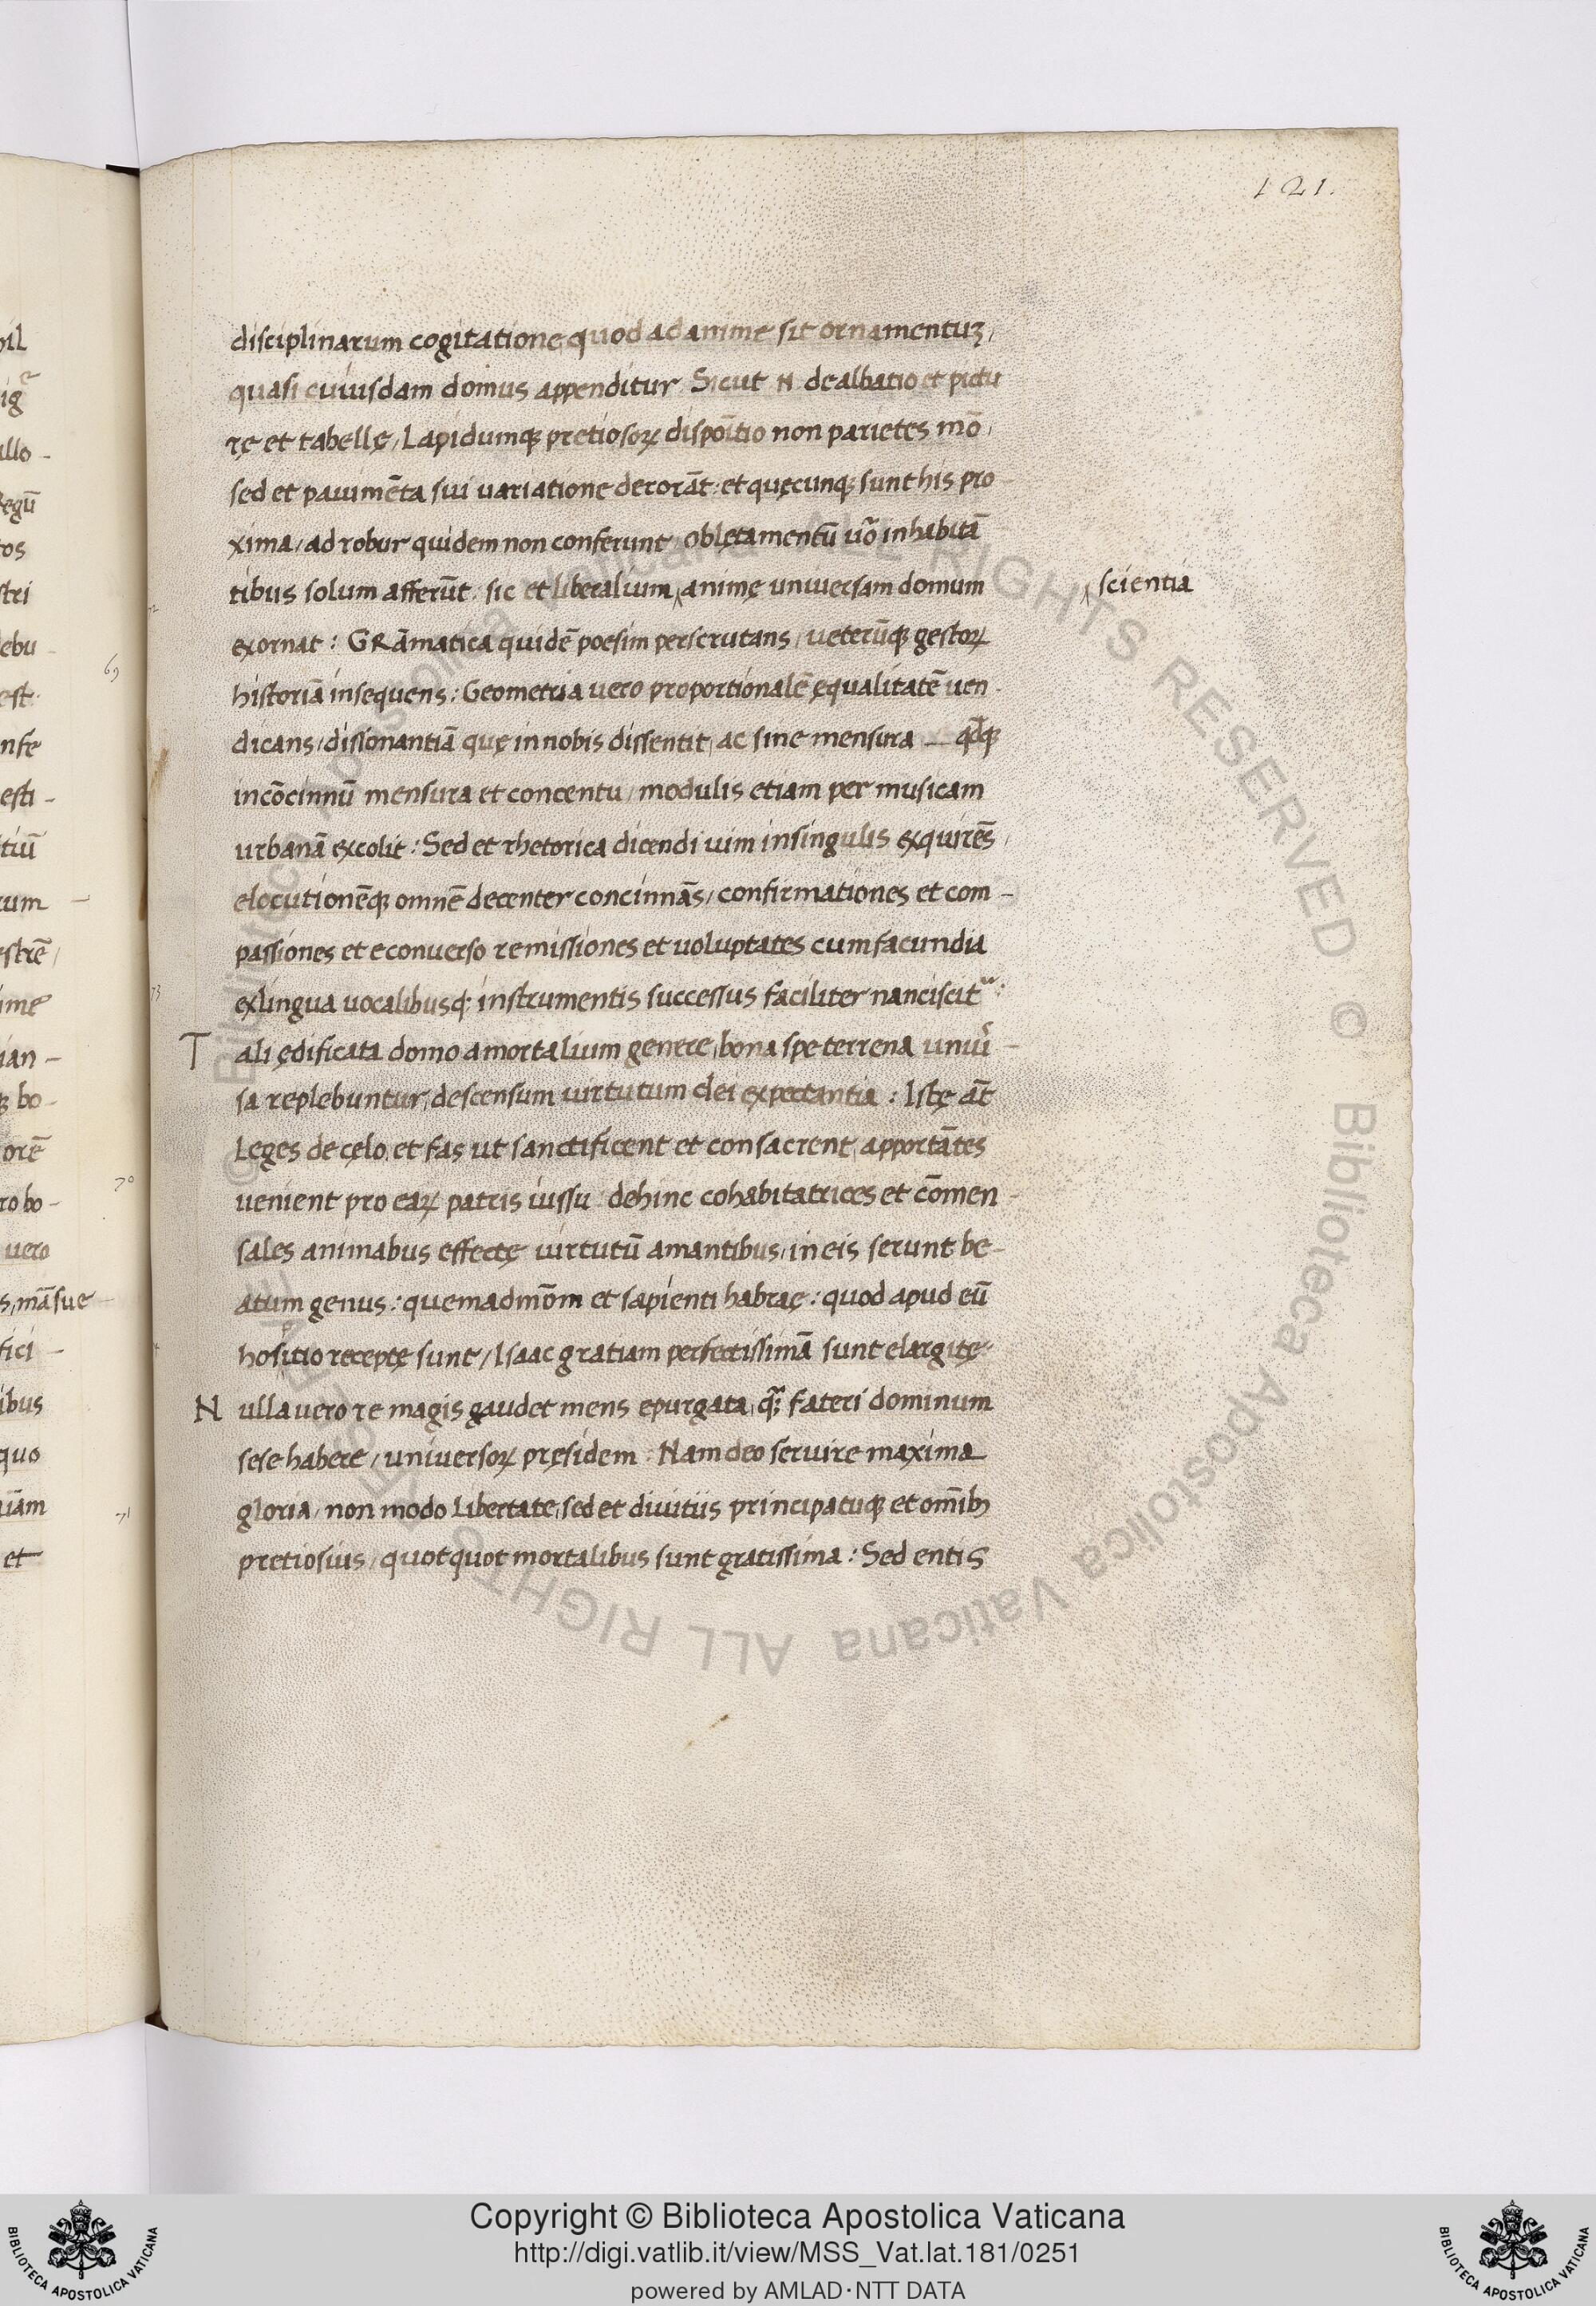 121.
disciplinarum cogitatione quod ad anime sit ornamentuʒ,
quasi cuiusdam domus appenditur. Sicut .N. dealbatio et pictu
rę et tabellę, Lapidumqꝫ pretiosoꝝ dispo͞itio non parietes mō,
sed et pauimēta sui uariatione decorāt: et quęcunqꝫ sunt his pro
xima, ad robur quidem non conferunt, oblętamentū uō inhabitā
tibus solum afferūt. sic et liberalium ‸ animę uniuersam domum
‸ scientia
exornat: GRāmatica quidē poesim perscrutans, ueterūqꝫ gestoꝝ
historiā insequens: Geometria uero proportionalē ęqualitatē uen-
dicans, dissonantiā quę in nobis dissentit, ac sine mensura — qdqꝫ
incōcinnū mensura et concentu, modulis etiam per musicam
urbanā excolit: Sed et rhetorica dicendi uim in singulis exquirēs,
elocutionēqꝫ omnē decenter concinnās, confirmationes et com-
passiones et e conuerso remissiones et uoluptates cum facundia
ex lingua uocalibusqꝫ instrumentis successus faciliter nanciscit᷑:
Tali ędificata domo a mortalium genere, bona spe terrena uniu̓-
sa replebuntur, descensum uirtutum dei expectantia: Istę aūt
Leges de cęlo, et fas ut sanctificent et consacrent, apportātes
uenient pro eaꝝ patris iussu. dehinc cohabitatrices et cōmen-
sales animabus effectę uirtutū amantibus, in eis serunt be-
atum genus: quemadmōm et sapienti habraę: quod apud eū
hositio receptę sunt, Isaac gratiam perfectissimā sunt elargitę.
Nulla uero re magis gaudet mens epurgata, qꝫ̄ fateri dominum
sese habere, uniuersoꝝ pręsidem: Nam deo seruire maxima
gloria, non modo Libertate, sed et diuitiis principatuqꝫ et om̄ibꝫ
pretiosius, quotquot mortalibus sunt gratissima: Sed entis
Copyright © Biblioteca Apostolica Vaticana
http://digi.vatlib.it/view/MSS_Vat.lat.181/0251
powered by AMLAD·NTT DATA